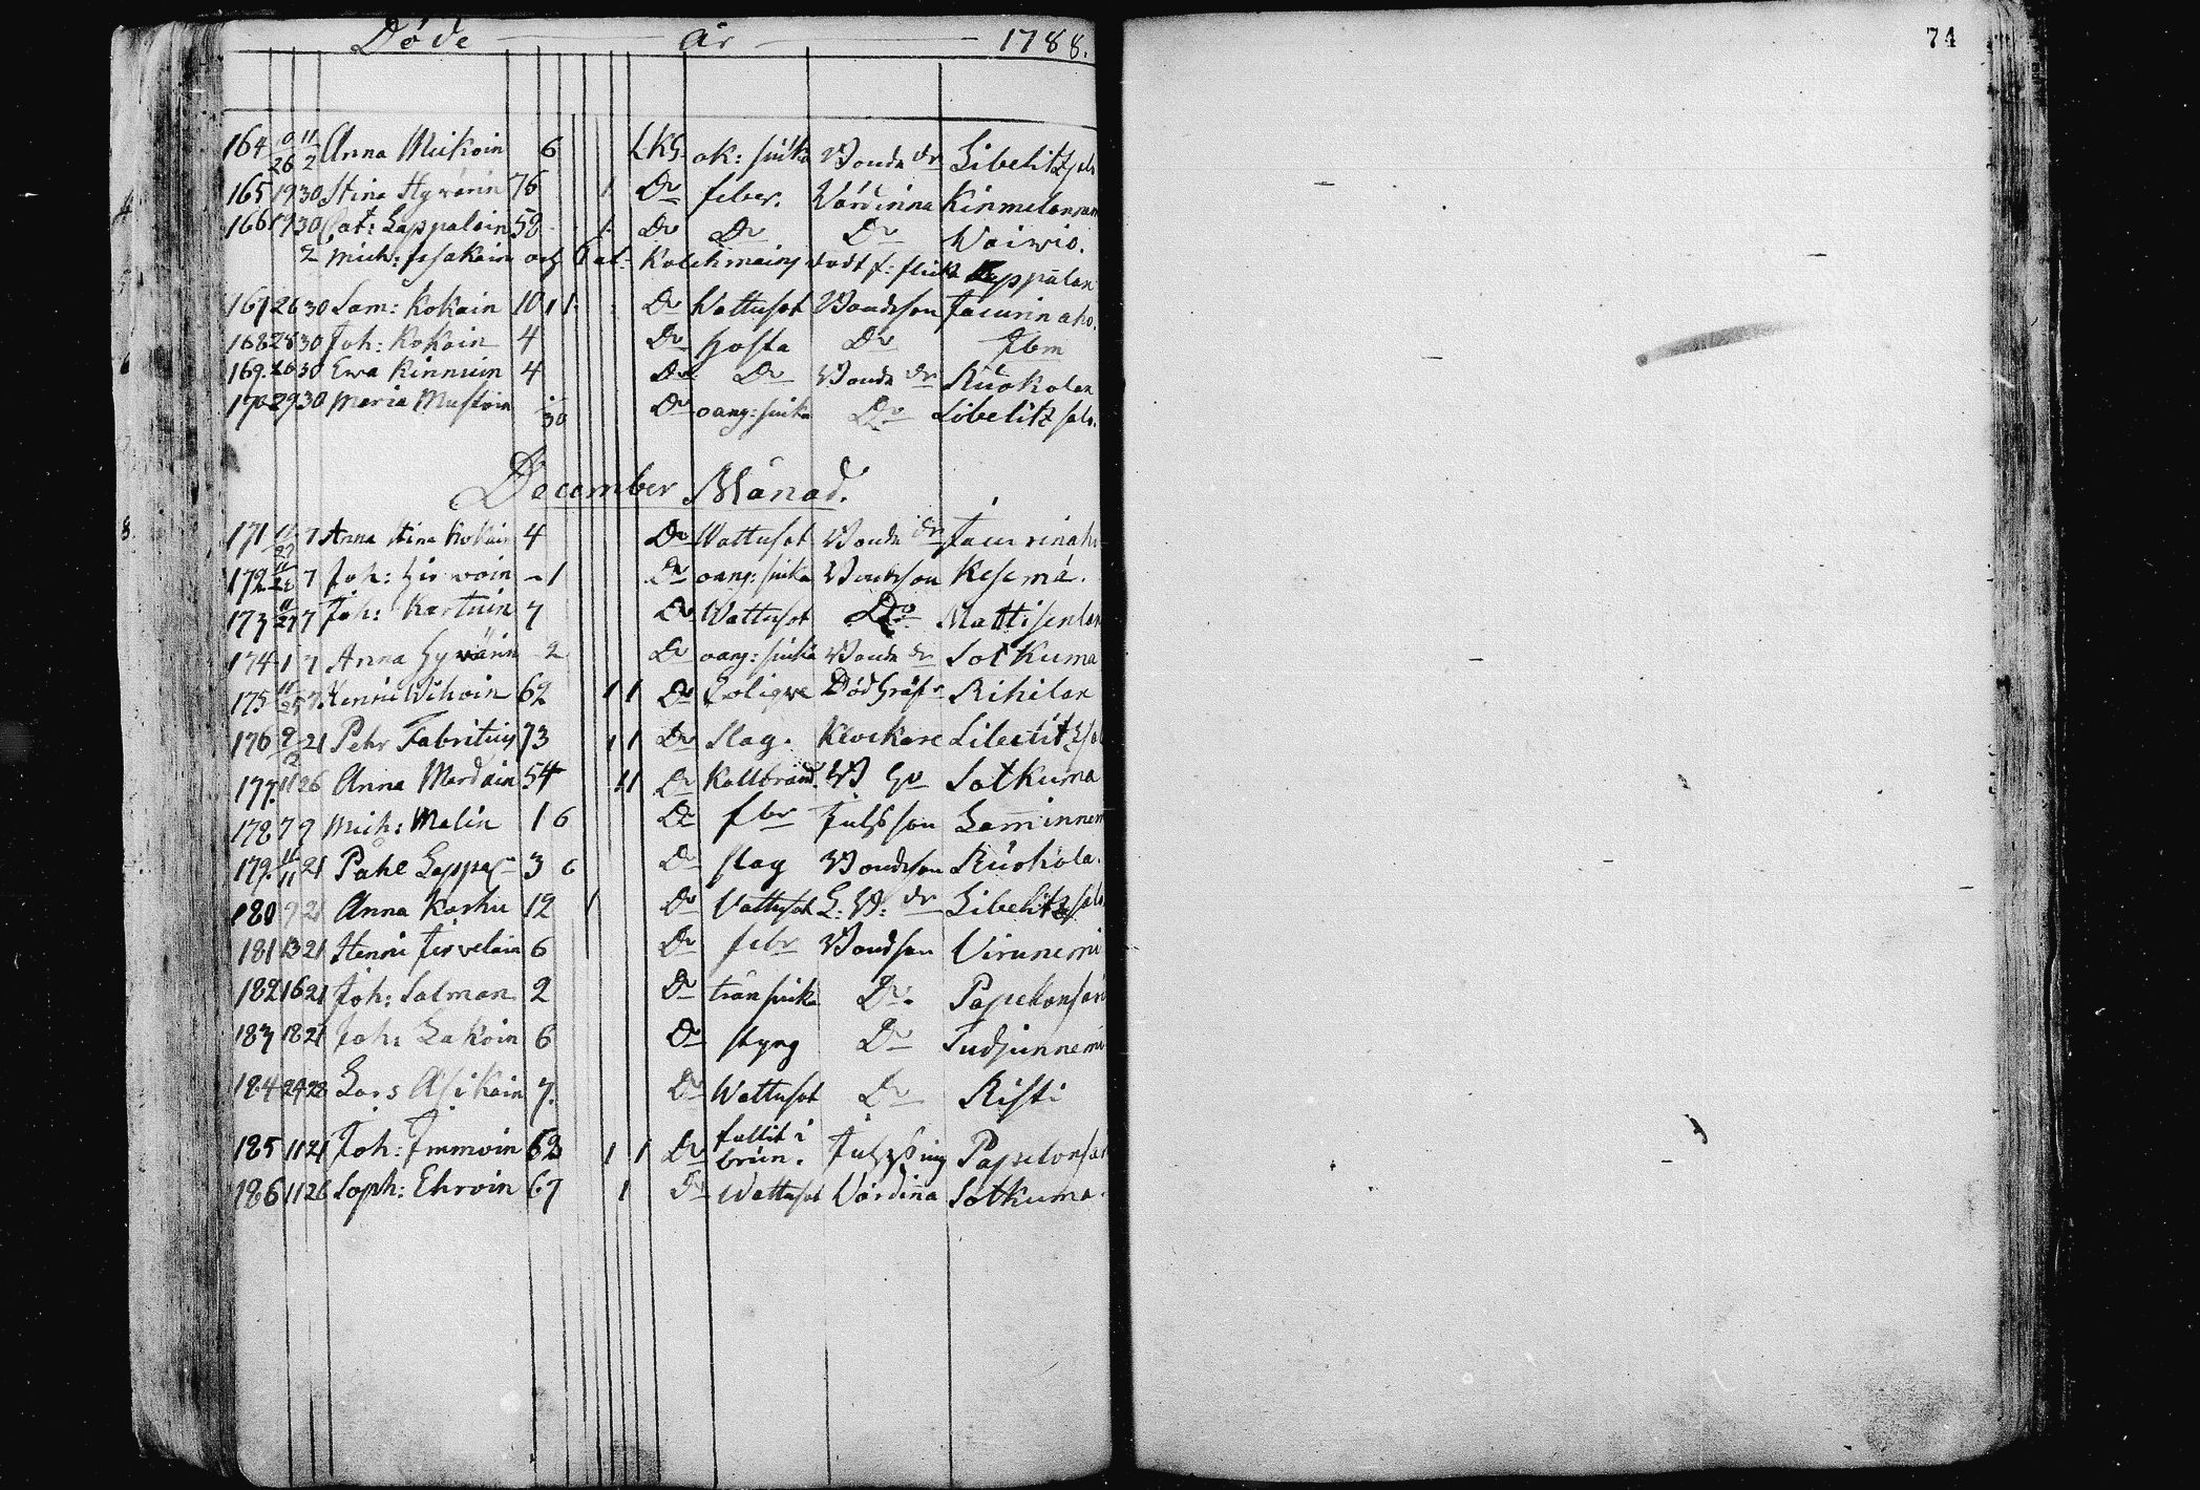 Döde år 1788.
74
164 10/26 11/2 Anna Mikoin 6 LKG. ok: siuka Bonde dr Libelitz salo
165 19 30 Stina Hyvärin 76 1 Do feber. Värdinna Kinmelansari
166 19 30 Cat: Lappalain 58 1 Do Do Do Waivio.
2 Mich: Issakain och Cat: Kolehmains dödf: flicka Leppälax
167 26 30 Sam: Kokoin 10 1 1 Do Wattusot Bondeson Jaurinaho.
168 28 30 Joh: Kokoin 4 Do Hosta Do Ibm
169. 26 30 Ewa Kinnuin 4 Do Do Bonde dr Ruokolax
170 29 30 Maria Mustoin 30 Do oang: siuka Do Libelitz salo.
December Månad.
171 11/27 7 Anna Stina Kokoin 4 Do Wattusot Bonde dr Jaurinaho
172 11/28 7 Joh: Hirvoin - 1 Do oang: siuka Bondeson Kesemä.
173 11/27 7 Joh: Kartuin 7 Do Wattusot Do Mattisenlax
174 1 7 Anna Hyvärin 2 Do oang: siuka Bonde dr Sotkuma
175 11/25 7. Henric Wihoin 62 1 1 Do Rihilax
176 9/12 21 Pehr Fabritius 73 1 1 Do Slag. Klockare Libelitz sal
177. 11 26 Anna Mardain 54 11 Do Kallbrand. B Ho Sotkuma
178 7 9 Mich: Malin 1 6 Do fbr Inhs son Laminnem
179. 11/11 21 Påhl Leppä 3 6 Do slag Bondeson Ruokola.
180 9 21 Anna Korhu 12 1 Do Vattusot L: B: dr Libelitz salo
181 13 21 Henric Jirvelain 6 Do febr Bondson Virunemi
182 16 21 Joh: Salman 2 Do trånsiuka Do. Papelonsari
183 18 21 Joh: Lakoin 6 Do styng Do Sudjunnemi
184 24 28 Lars Asikain 7. Do Wattusot Do Risti
185 11 21 Joh: Immoin 63 1 1 Do fallit i brun. Inhysing Papelonsar
186 11 26 Soph: Ehroin 67 1 Do Wattusot Värdina Sotkuma.